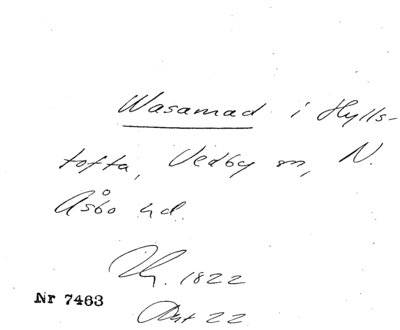 Wasamad i Hylls-
tofta, Vedby sn, N.
Åsbo hd.
1822
Nr 7463
Akt 22